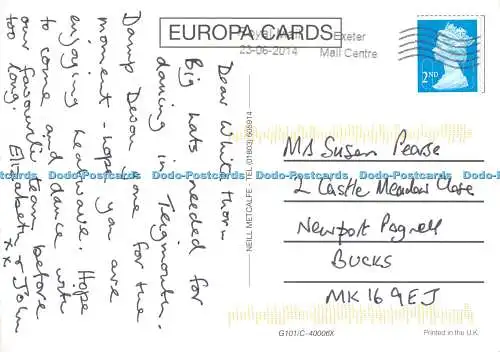 EUROPA CARDS
Royal Mail Exeter
23-06-2014 Mail Centre
2ND
Dear Whitethorn
Big hats needed for
dancing in Teignmouth.
Damp Devon gone for the
moment - hope you are
enjoying heatwave. Hope
to come and dance with
our favourite team before
too long. Elizabeth & John
xx
NEILL METCALFE · TEL (01803) 605914
Ms Susan Pearse
2 Castle Meadow Close
Newport Pagnell
BUCKS
MK16 9EJ
G101/C-40006X
Printed in the U.K.
Dodo-Postcards Dodo-Postcards Dodo-Postcards Dodo-Postcards Dodo-Postcards Dodo-Postcards